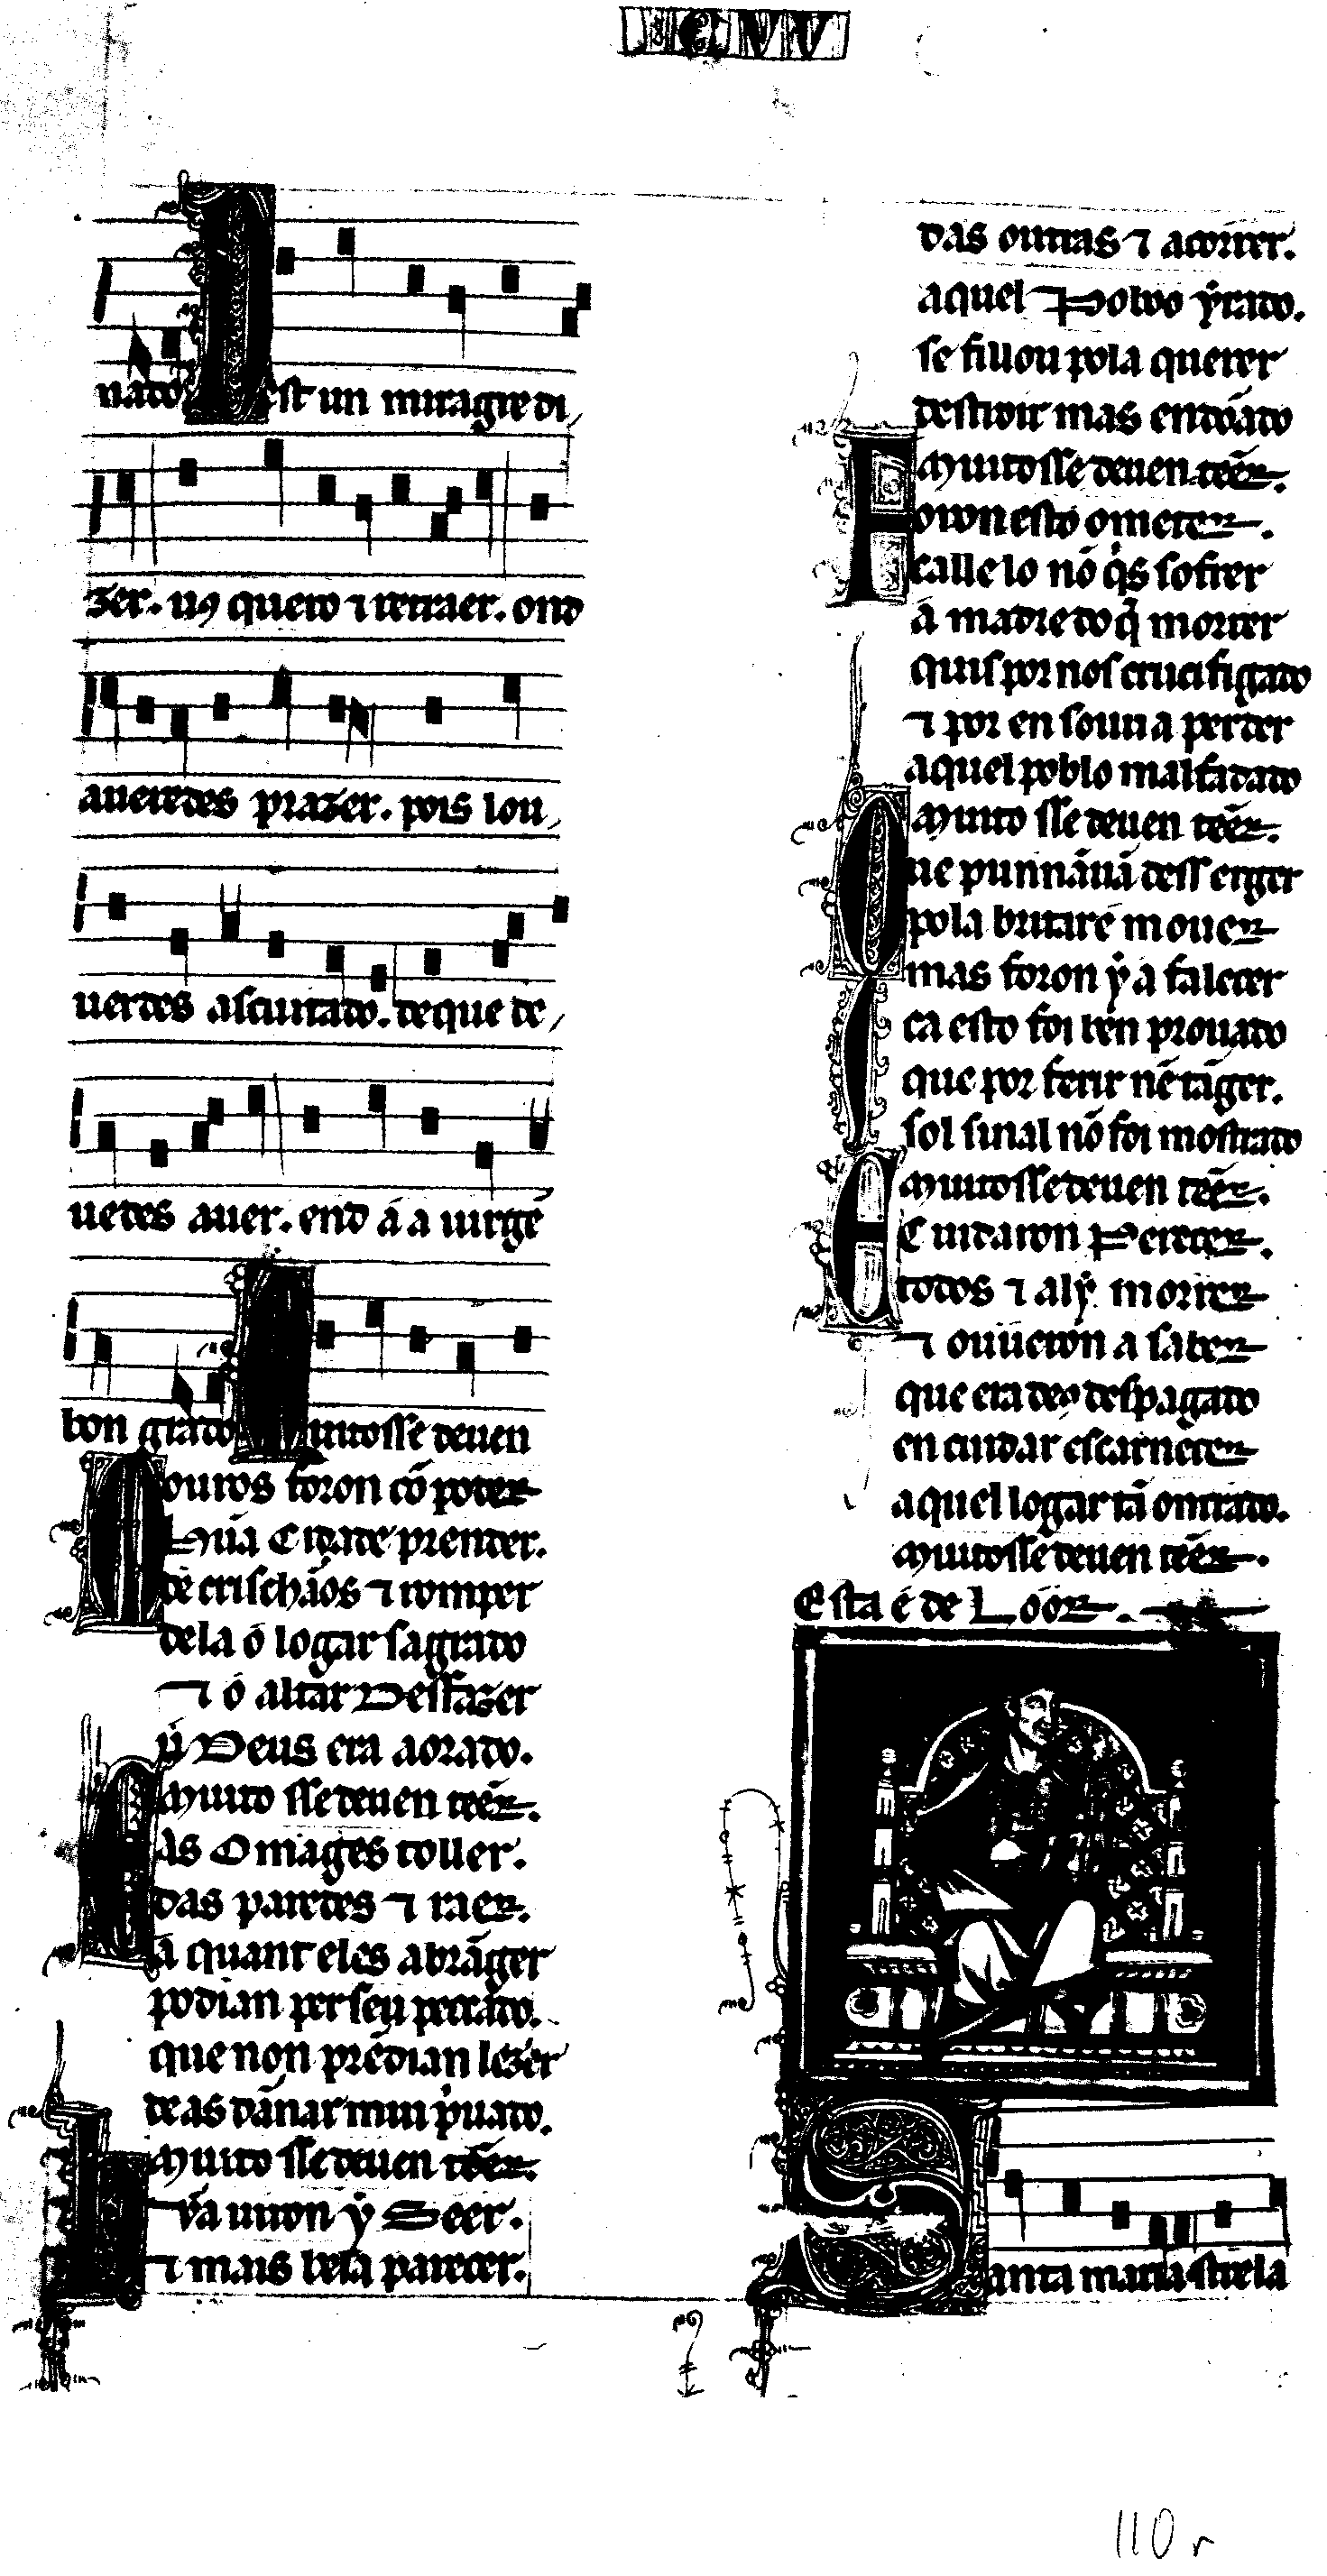 nado Dest un miragre di,
zer. uꝯ quero ⁊ retraer. ond
aueredes prazer. pois lou,
uerdes ascuitado. de que de,
uedes auer. end á a uirgẽ
bon grado Muitosse deuen
Mouros foron cõ poder
Hũa Cidade prender.
de crischãos ⁊ romper
dela ó logar sagrado
⁊ ó altar Desfazer
ú Deus era aorado.
Muito sse deuen teẽr.
As Omages toller.
das paredes ⁊ raer.
á quant eles abrãger
podian per seu peccado.
que non prẽdian lezer
de as dãnar mui p̊uado.
Muito sse deuen teẽr.
Hũa uiron ẏ Seer.
⁊ mais bela parecer.
das outras ⁊ acorrer.
aquel Poboo ẏrado.
se fillou pola querer
destroir mas endõado
Muitosse deuen teẽr.
Foron esto ó meter.
ca lle lo nõ q̊s sofrer
á madre do q̃ morrer
quis por nos crucifigado
⁊ por en soun a perder
aquel poblo malfadado
Muito sse deuen teẽr.
Que punnáuã dess erger
pola britarẽ mouer
mas foron ẏ a falecer
ca esto foi ben prouado
que por ferir nẽ tãger.
sol sinal nõ foi mostrado
Muitosse deuen teẽr.
E Cuidaron Perecer.
todos ⁊ alẏ morrer
⁊ ouueron a saber
que era deꝯ despagado
en cuidar escarnecer
aquel logar tã onrrado.
Muitosse deuen teẽr.
Esta é de Loor.
Santa maria strela
110 r